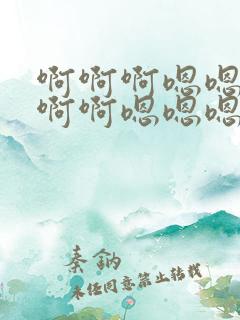 啊啊啊嗯嗯
啊啊嗯嗯嗯
秦鈉
未经同意禁止转载